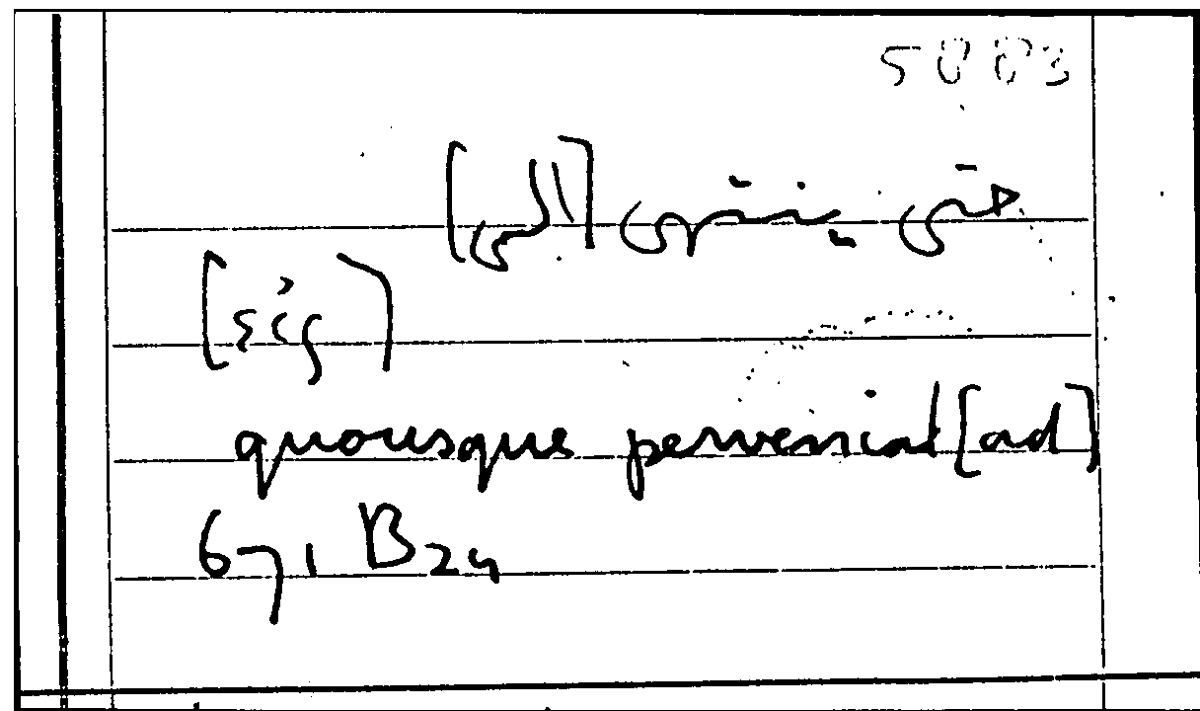 حتى ينتهى [الى]
[εἰς]
quousque perveniat [ad]
671 B24